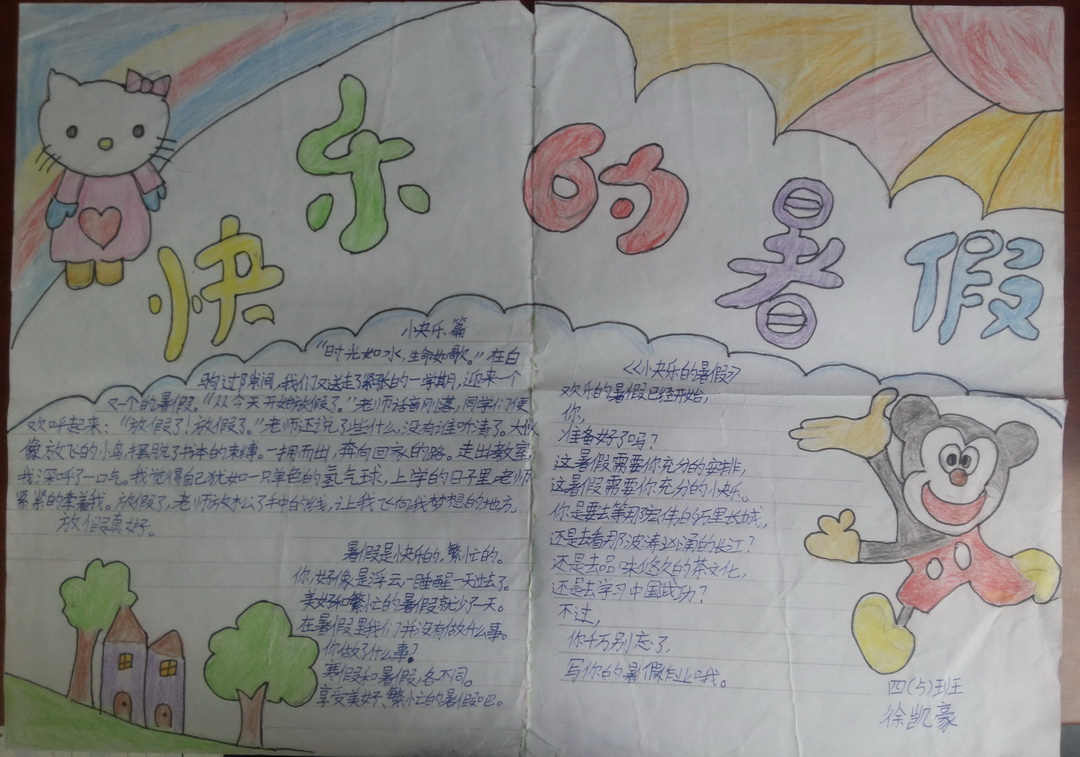 快乐的暑假
快乐篇
“时光如水，生命如歌。”在白
驹过隙间，我们又送走了紧张的一学期，迎来一个
又一个的暑假。“从今天开始放假了。”老师话音刚落，同学们便
欢呼起来：“放假了！放假了。”老师还说了些什么，没有谁听清了。大伙
像放飞的小鸟，摆脱了书本的束缚。一拥而出，奔向回家的路。走出教室，
我深呼了一口气。我觉得自己犹如一只单色的氢气球，上学的日子里，老师
紧紧的牵着我。放假了，老师放松了手中的线，让我飞向我梦想的地方。
放假真好。
暑假是快乐的，繁忙的。
你，好像是浮云，一睡醒一天过去了。
美好和繁忙的暑假就少了一天。
在暑假里我们并没有做什么事。
你做了什么事？
寒假和暑假，各不同。
享受美好、繁忙的暑假吧。
《快乐的暑假》
欢乐的暑假已经开始，
你，
准备好了吗？
这暑假需要你充分的安排，
这暑假需要你充分的快乐。
你是要去等那宏伟的万里长城，
还是去看那波涛汹涌的长江？
还是去品味悠久的茶文化，
还是去学习中国武功？
不过，
你千万别忘了，
写你的暑假作业哦。
四(5)班
徐凯豪